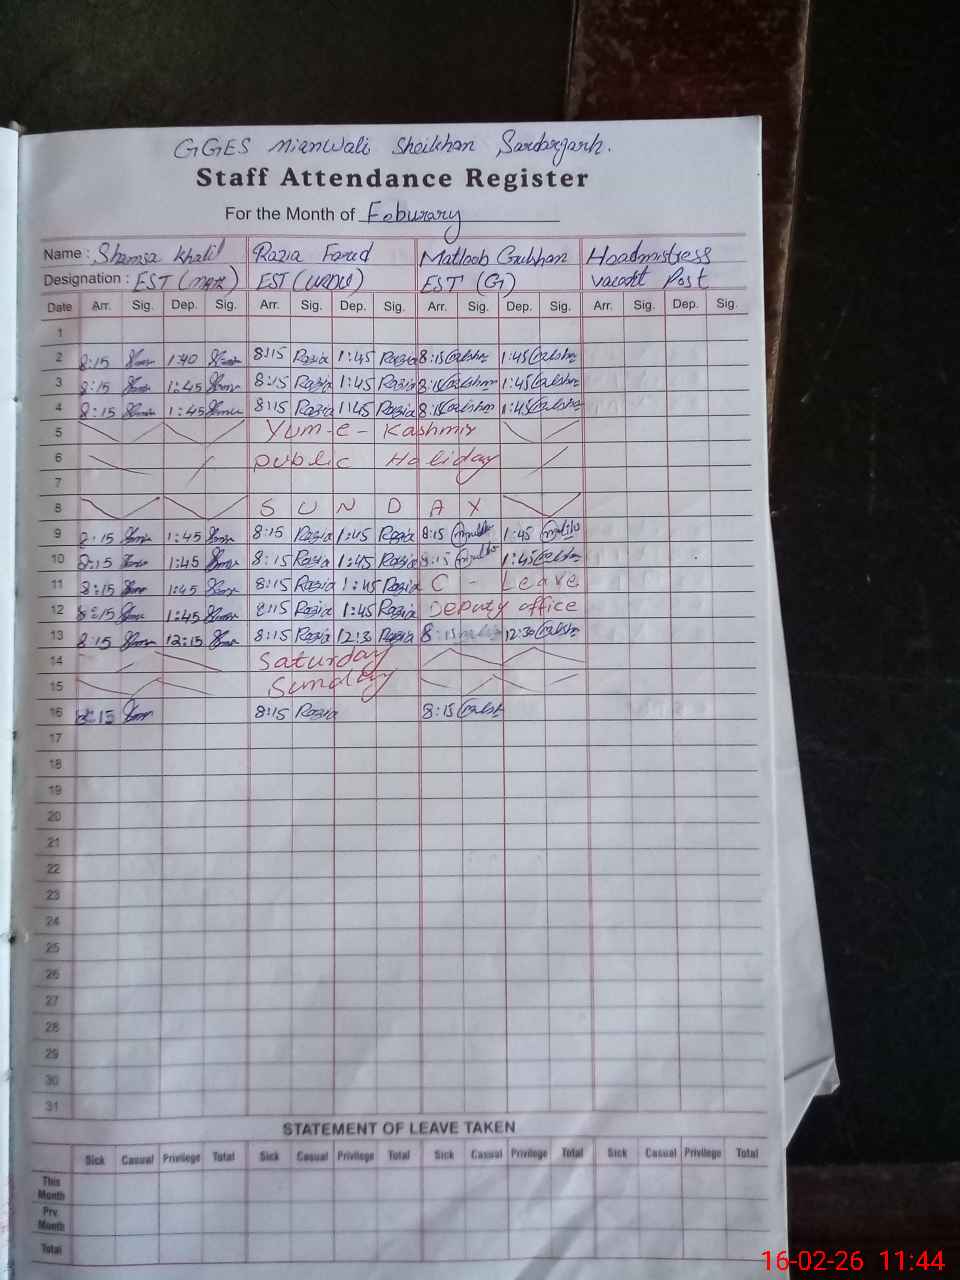 GGES Mianwali Sheikhan Sardargarh.
Staff Attendance Register
For the Month of Feburary
Name : Shamsa Khalil Razia Farid Matloob Gulshan Headmistress
Designation : EST (Math) EST (URDU) EST (G) vacant Post
Date Arr. Sig. Dep. Sig. Arr. Sig. Dep. Sig. Arr. Sig. Dep. Sig. Arr. Sig. Dep. Sig.
1
2 8:15 1:40 8:15 Razia 1:45 Razia 8:15 Gulshn 1:45 Gulshn
3 8:15 1:45 8:15 Razia 1:45 Razia 8:15 Gulshn 1:45 Gulshn
4 8:15 1:45 8:15 Razia 1:45 Razia 8:15 Gulshn 1:45 Gulshn
5 Yum-e-Kashmir
6 Public Holiday
7
8 S U N D A Y
9 8:15 1:45 8:15 Razia 1:45 Razia 8:15 1:45
10 8:15 1:45 8:15 Razia 1:45 Razia 8:15 1:45 Gulshn
11 8:15 1:45 8:15 Razia 1:45 Razia C - Leave
12 8:15 1:45 8:15 Razia 1:45 Razia Deputy office
13 8:15 12:15 8:15 Razia 12:30 Razia 8:15 12:30 Gulshn
14 Saturday
15 Sunday
16 8:15 8:15 Razia 8:15 Gulsh
17
18
19
20
21
22
23
24
25
26
27
28
29
30
31
STATEMENT OF LEAVE TAKEN
Sick Casual Privilege Total Sick Casual Privilege Total Sick Casual Privilege Total Sick Casual Privilege Total
This
Month
Prv.
Month
Total
16-02-26 11:44